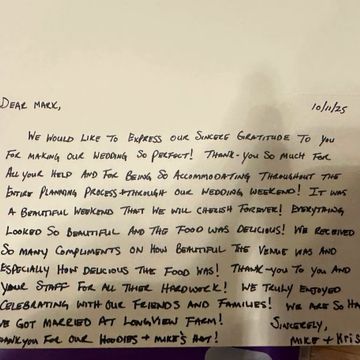 DEAR MARK,
10/11/25
WE WOULD LIKE TO EXPRESS OUR SINCERE GRATITUDE TO YOU
FOR MAKING OUR WEDDING SO PERFECT! THANK-YOU SO MUCH FOR
ALL YOUR HELP AND FOR BEING SO ACCOMMODATING THROUGHOUT THE
ENTIRE PLANNING PROCESS + THROUGH OUR WEDDING WEEKEND! IT WAS
A BEAUTIFUL WEEKEND THAT WE WILL CHERISH FOREVER! EVERYTHING
LOOKED SO BEAUTIFUL AND THE FOOD WAS DELICIOUS! WE RECEIVED
SO MANY COMPLIMENTS ON HOW BEAUTIFUL THE VENUE WAS AND
ESPECIALLY HOW DELICIOUS THE FOOD WAS! THANK-YOU TO YOU AND
YOUR STAFF FOR ALL THIER HARDWORK! WE TRULY ENJOYED
CELEBRATING WITH OUR FRIENDS AND FAMILIES! WE ARE SO HA
WE GOT MARRIED AT LONGVIEW FARM! SINCERELY,
HANKYOU FOR OUR HOODIES + MIKE'S HAT! MIKE + KRIS